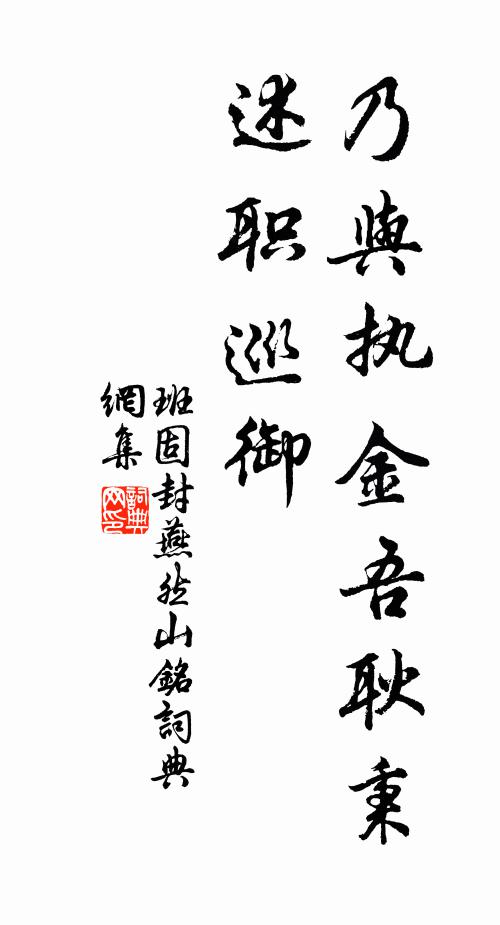 乃與执金吾耿秉
述职巡御
班固封燕然山銘詞典
網集
詞典
网印